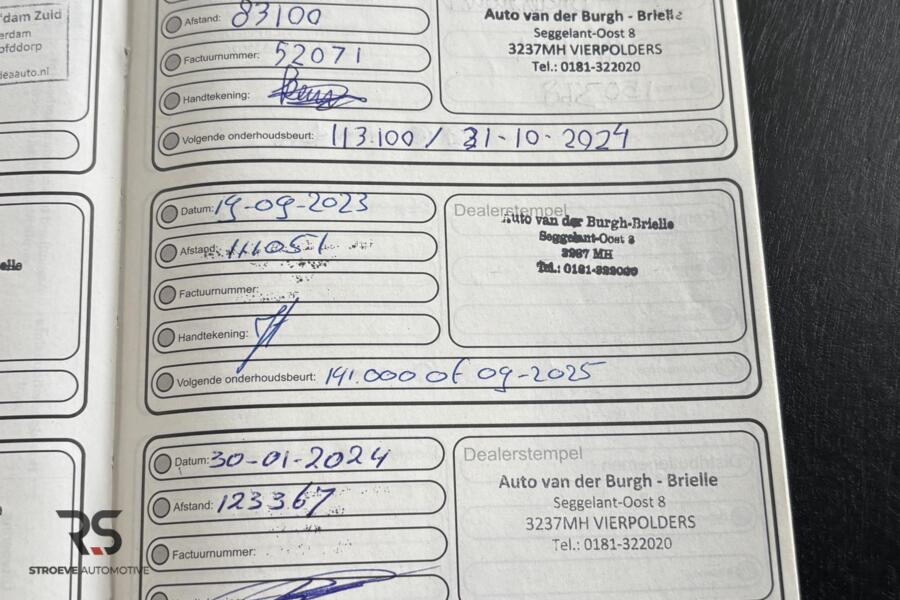 dam Zuid
erdam
ofddorp
deaauto.nl
elle
Afstand: 83100
Factuurnummer: 52071
Handtekening:
Volgende onderhoudsbeurt: 113.100 / 31-10-2024
Auto van der Burgh - Brielle
Seggelant-Oost 8
3237MH VIERPOLDERS
Tel.: 0181-322020
Datum: 19-09-2023
Afstand: 111051
Factuurnummer:
Handtekening:
Volgende onderhoudsbeurt: 141.000 of 09-2025
Dealerstempel
Auto van der Burgh-Brielle
Seggelant-Oost 8
MH
Tel.: 0181-
Datum: 30-01-2024
Afstand: 123367
Factuurnummer:
Dealerstempel
Auto van der Burgh - Brielle
Seggelant-Oost 8
3237MH VIERPOLDERS
Tel.: 0181-322020
RS
STROEVE AUTOMOTIVE